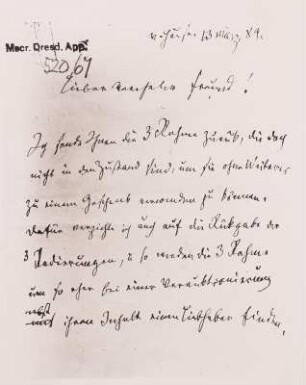 v. Hause 13 März 89.
Mscr. Dresd. App.
520/67
Lieber verehrter Freund!
Ich sende Ihnen die 3 Rahme zurück, die doch
nicht in dem Zustand sind, um sie ohne Weiteres
zu einem Geschenk verwenden zu können.
Dafür verzichte ich auch auf die Rückgabe der
3 Radierungen, u so werden die 3 Rahme
um so eher bei einer Verauktionierung
nebst ihrem Inhalt einen Liebhaber finden,